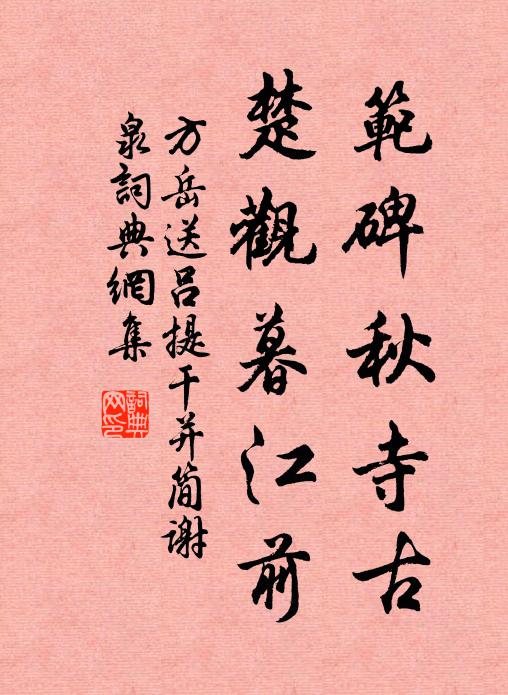 範碑秋寺古
楚觀暮江前
方岳送呂提干并简谢
泉詞典網集
詞典
网印